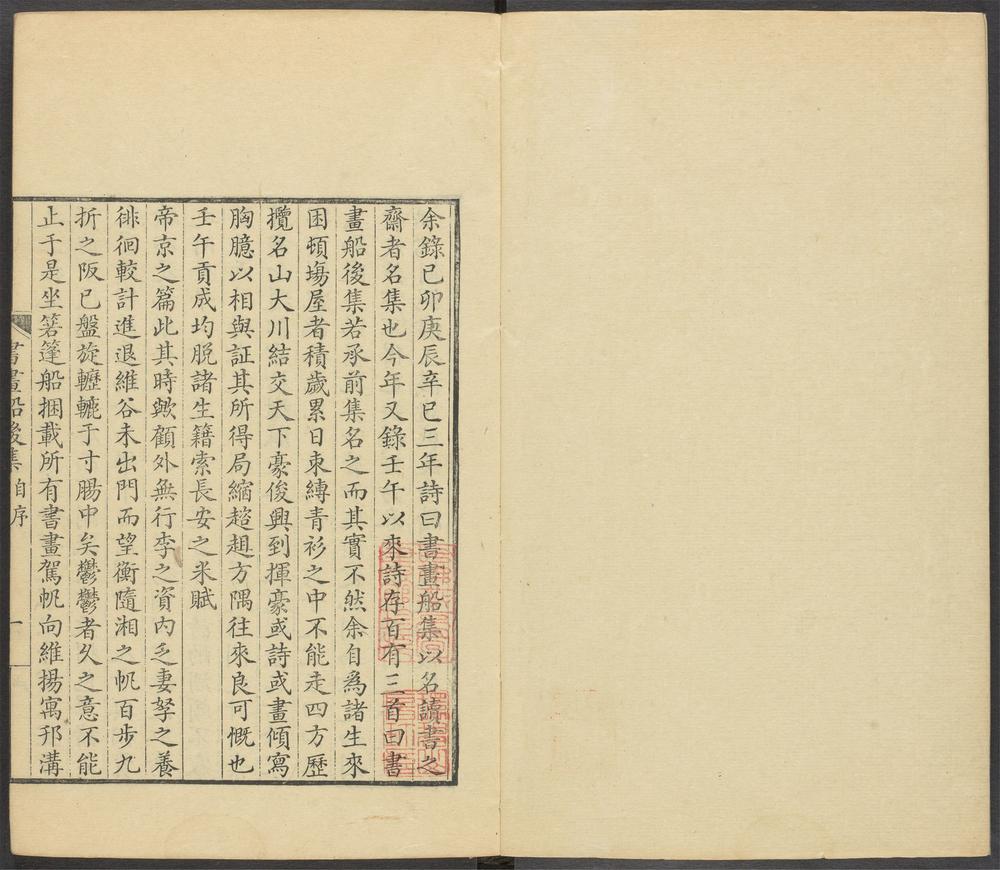 余錄己卯庚辰辛巳三年詩曰書畫船集以名讀書之
齋者名集也今年又錄壬午以來詩存百有三首曰書
畫船後集若承前集名之而其實不然余自為諸生來
困頓塲屋者積歲累日束縛青衫之中不能走四方歷
攬名山大川結交天下豪俊興到揮豪或詩或畫傾寫
胸臆以相與証其所得局縮趦趄方隅往來良可慨也
壬午貢成均脫諸生籍索長安之米賦
帝京之篇此其時歟顧外無行李之資内乏妻孥之養
徘徊較計進退維谷未出門而望衡隨湘之帆百步九
折之阪已盤旋轣轆于寸腸中矣鬱鬱者久之意不能
止于是坐箬篷船捆載所有書畫駕帆向維揚寓邗溝
書畫船後集 自序 一